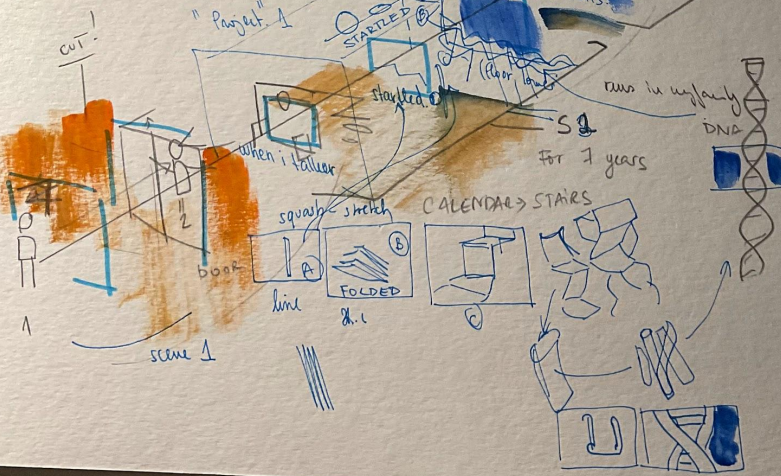 "Project. 1
CUT!
STARTLED
B
startled.
(floor
runs in my family
DNA
S1
For 7 years
when i talker
squash - stretch
CALENDAR > STAIRS
2
DOOR
A
line
B
FOLDED
C
1
scene 1